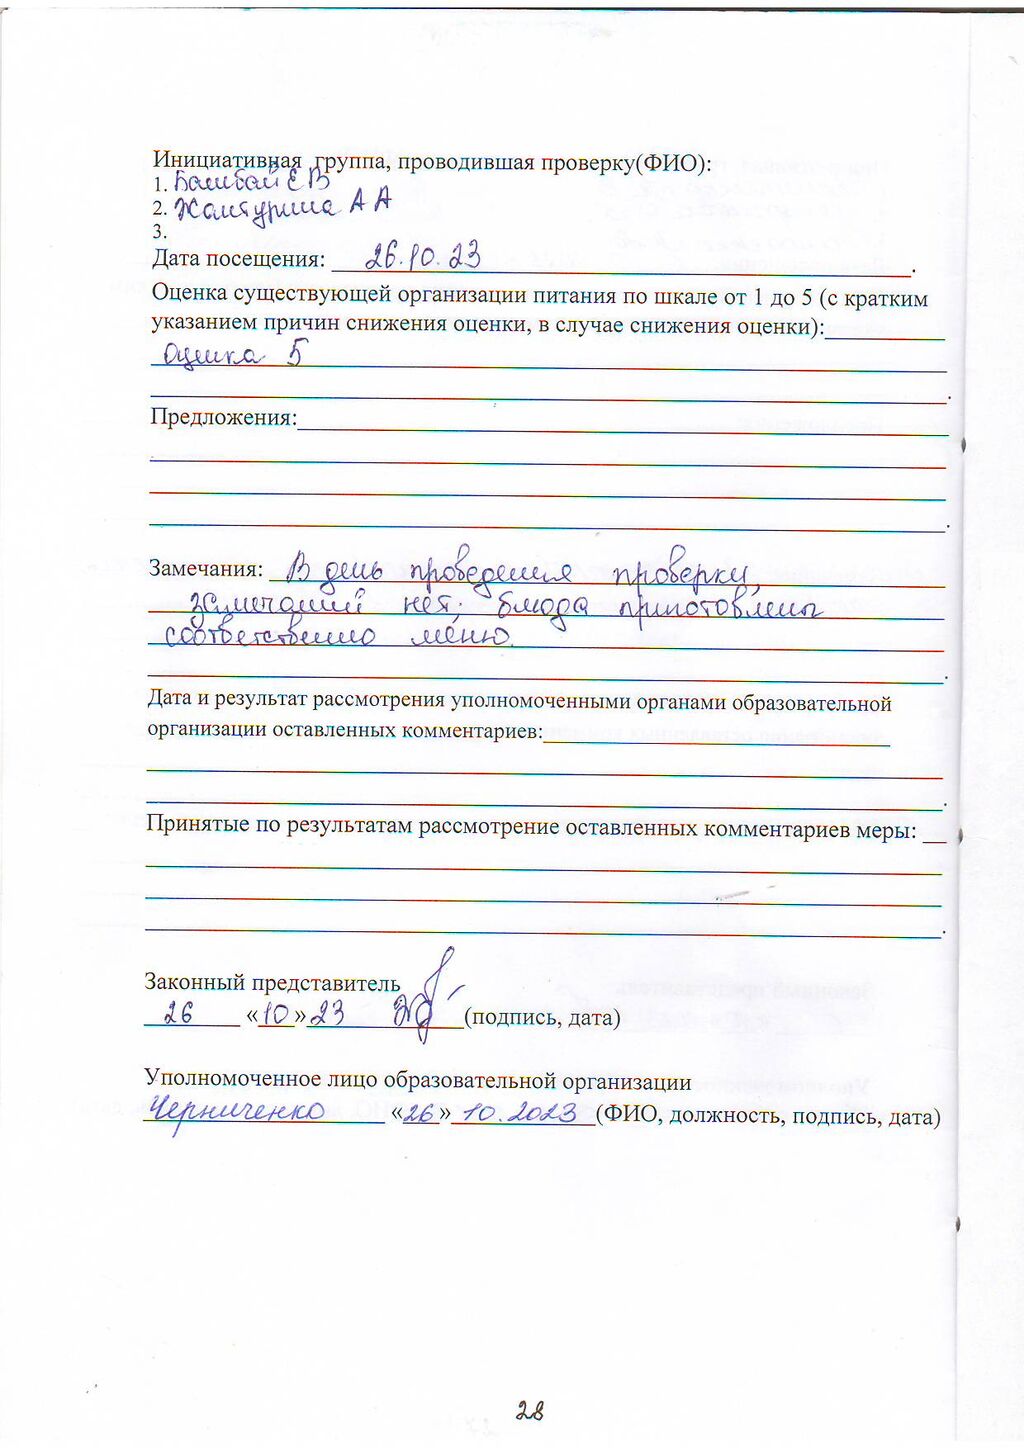 Инициативная группа, проводившая проверку(ФИО):
1. Балибай Е В
2. Жантурина А А
3.
Дата посещения: 26.10.23.
Оценка существующей организации питания по шкале от 1 до 5 (с кратким
указанием причин снижения оценки, в случае снижения оценки):
Оценка 5
Предложения:
Замечания: В день проведения проверки,
замечаний нет, блюда приготовлены
соответственно меню.
Дата и результат рассмотрения уполномоченными органами образовательной
организации оставленных комментариев:
Принятые по результатам рассмотрение оставленных комментариев меры:
Законный представитель
26 «10»23 (подпись, дата)
Уполномоченное лицо образовательной организации
Черниченко «26» 10.2023 (ФИО, должность, подпись, дата)
28